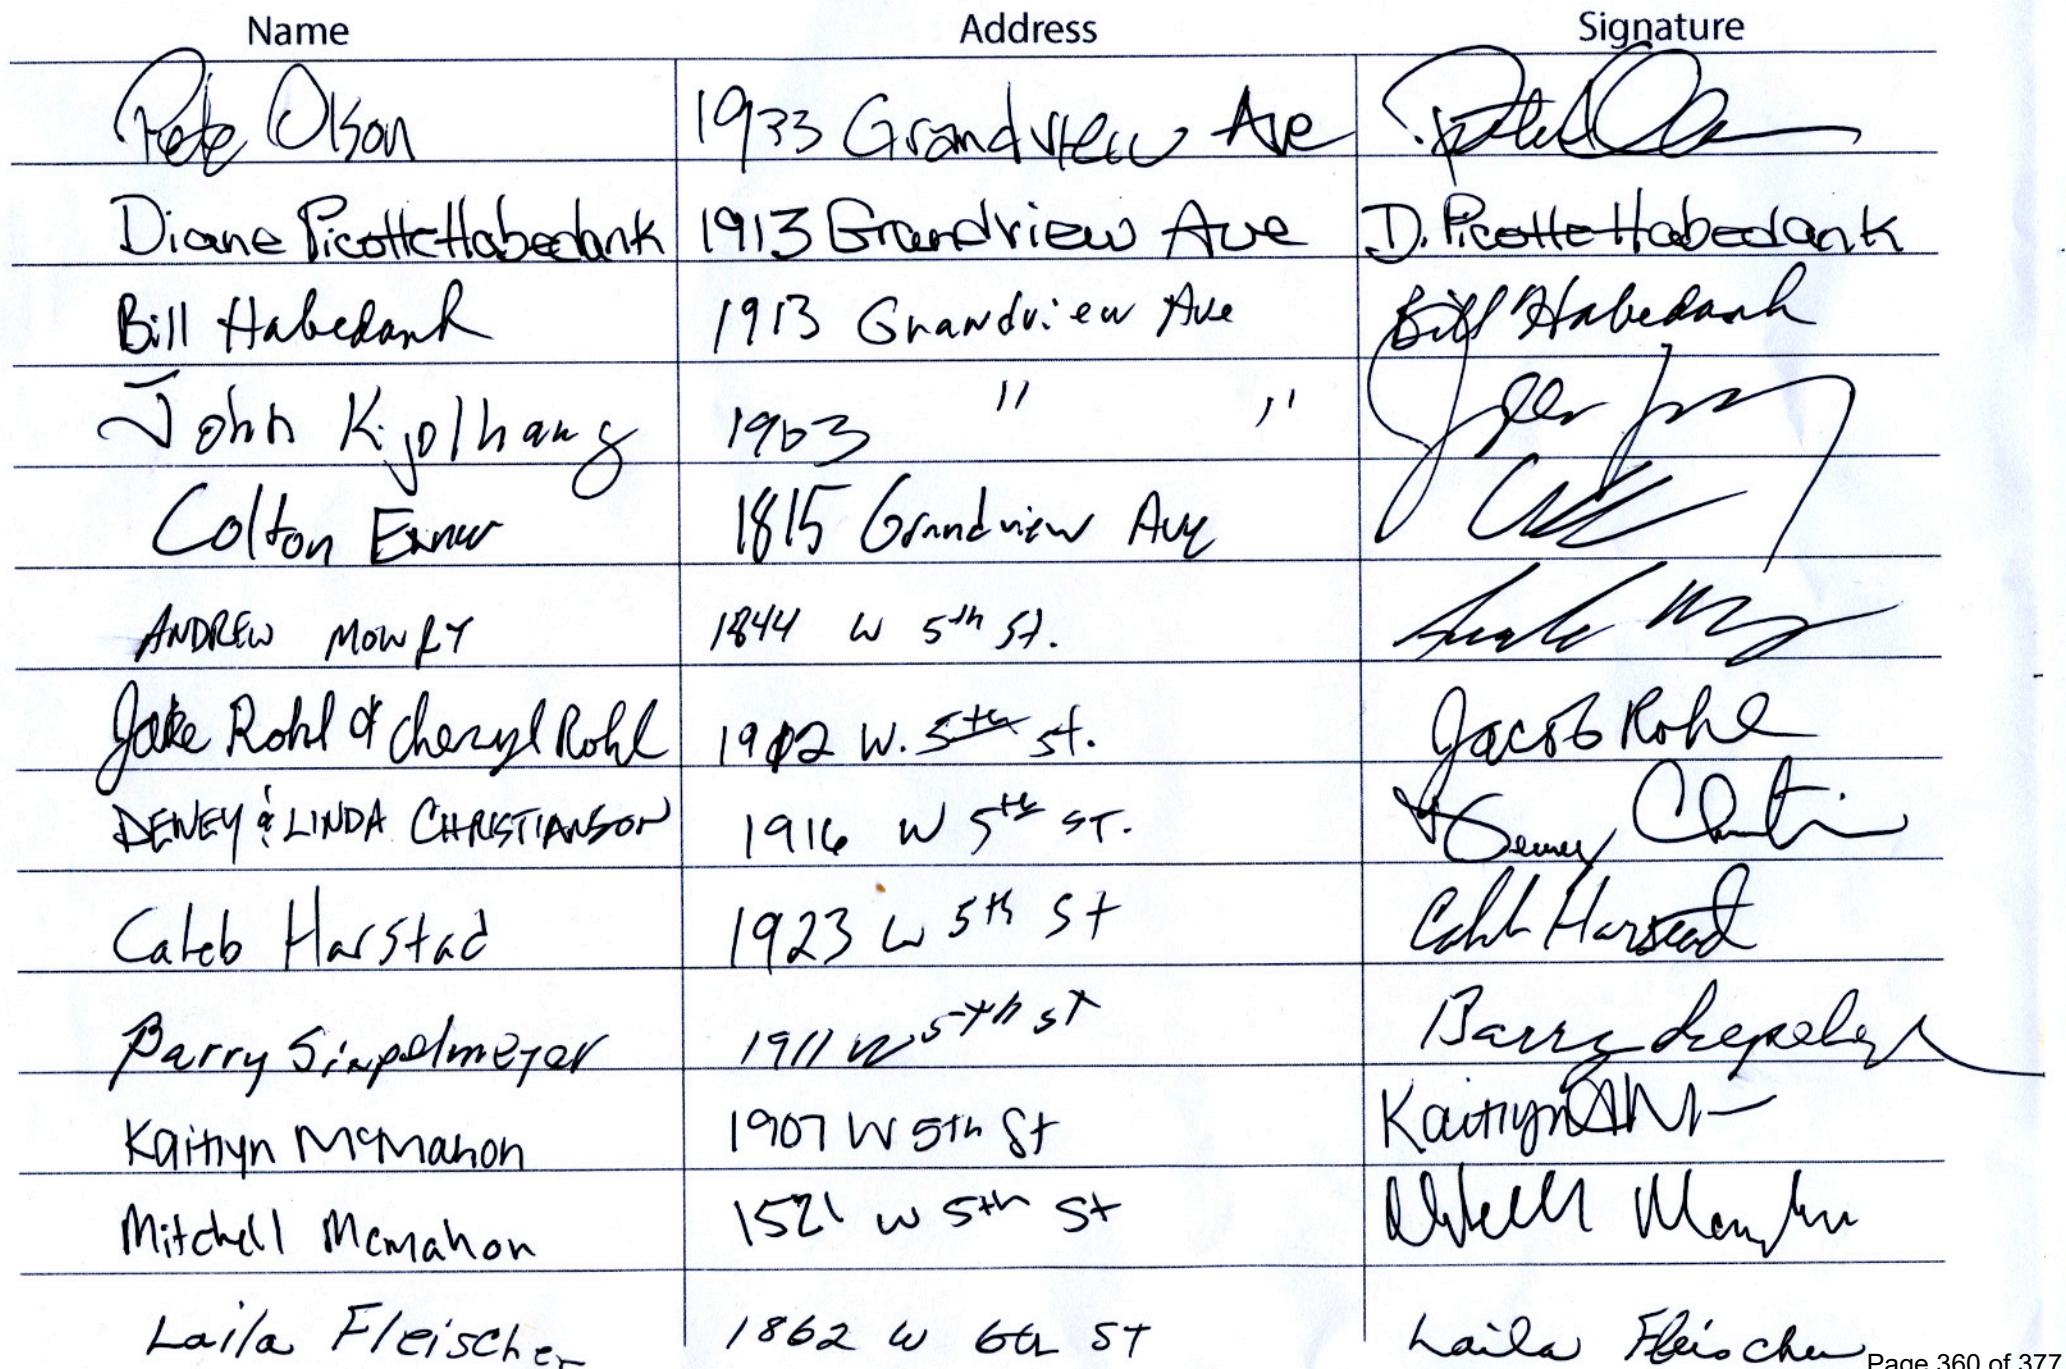 Name Address Signature
Pete Olson 1933 Grandview Ave
Diane Picotte Habedank 1913 Grandview Ave D. Picotte-Habedank
Bill Habedank 1913 Grandview Ave Bill Habedank
John Kjolhaug 1903 " "
Colton 1815 Grandview Ave
ANDREW MOWRY 1844 W 5th St.
Jake Rohl & Cheryl Rohl W. 5th St. Jacob Rohl
DEWEY & LINDA CHRISTIANSON 1916 W 5th ST. Dewey
Caleb Harstad 1923 W 5th St Caleb Harstad
Barry 1911 W 5th St Barry
Kaitlyn McMahon 1907 W 5th St Kaitlyn
Mitchell Mcmahon 1521 W 5th St
Laila Fleischer 1862 W 6th ST Laila Fleischer
Page 360 of 377